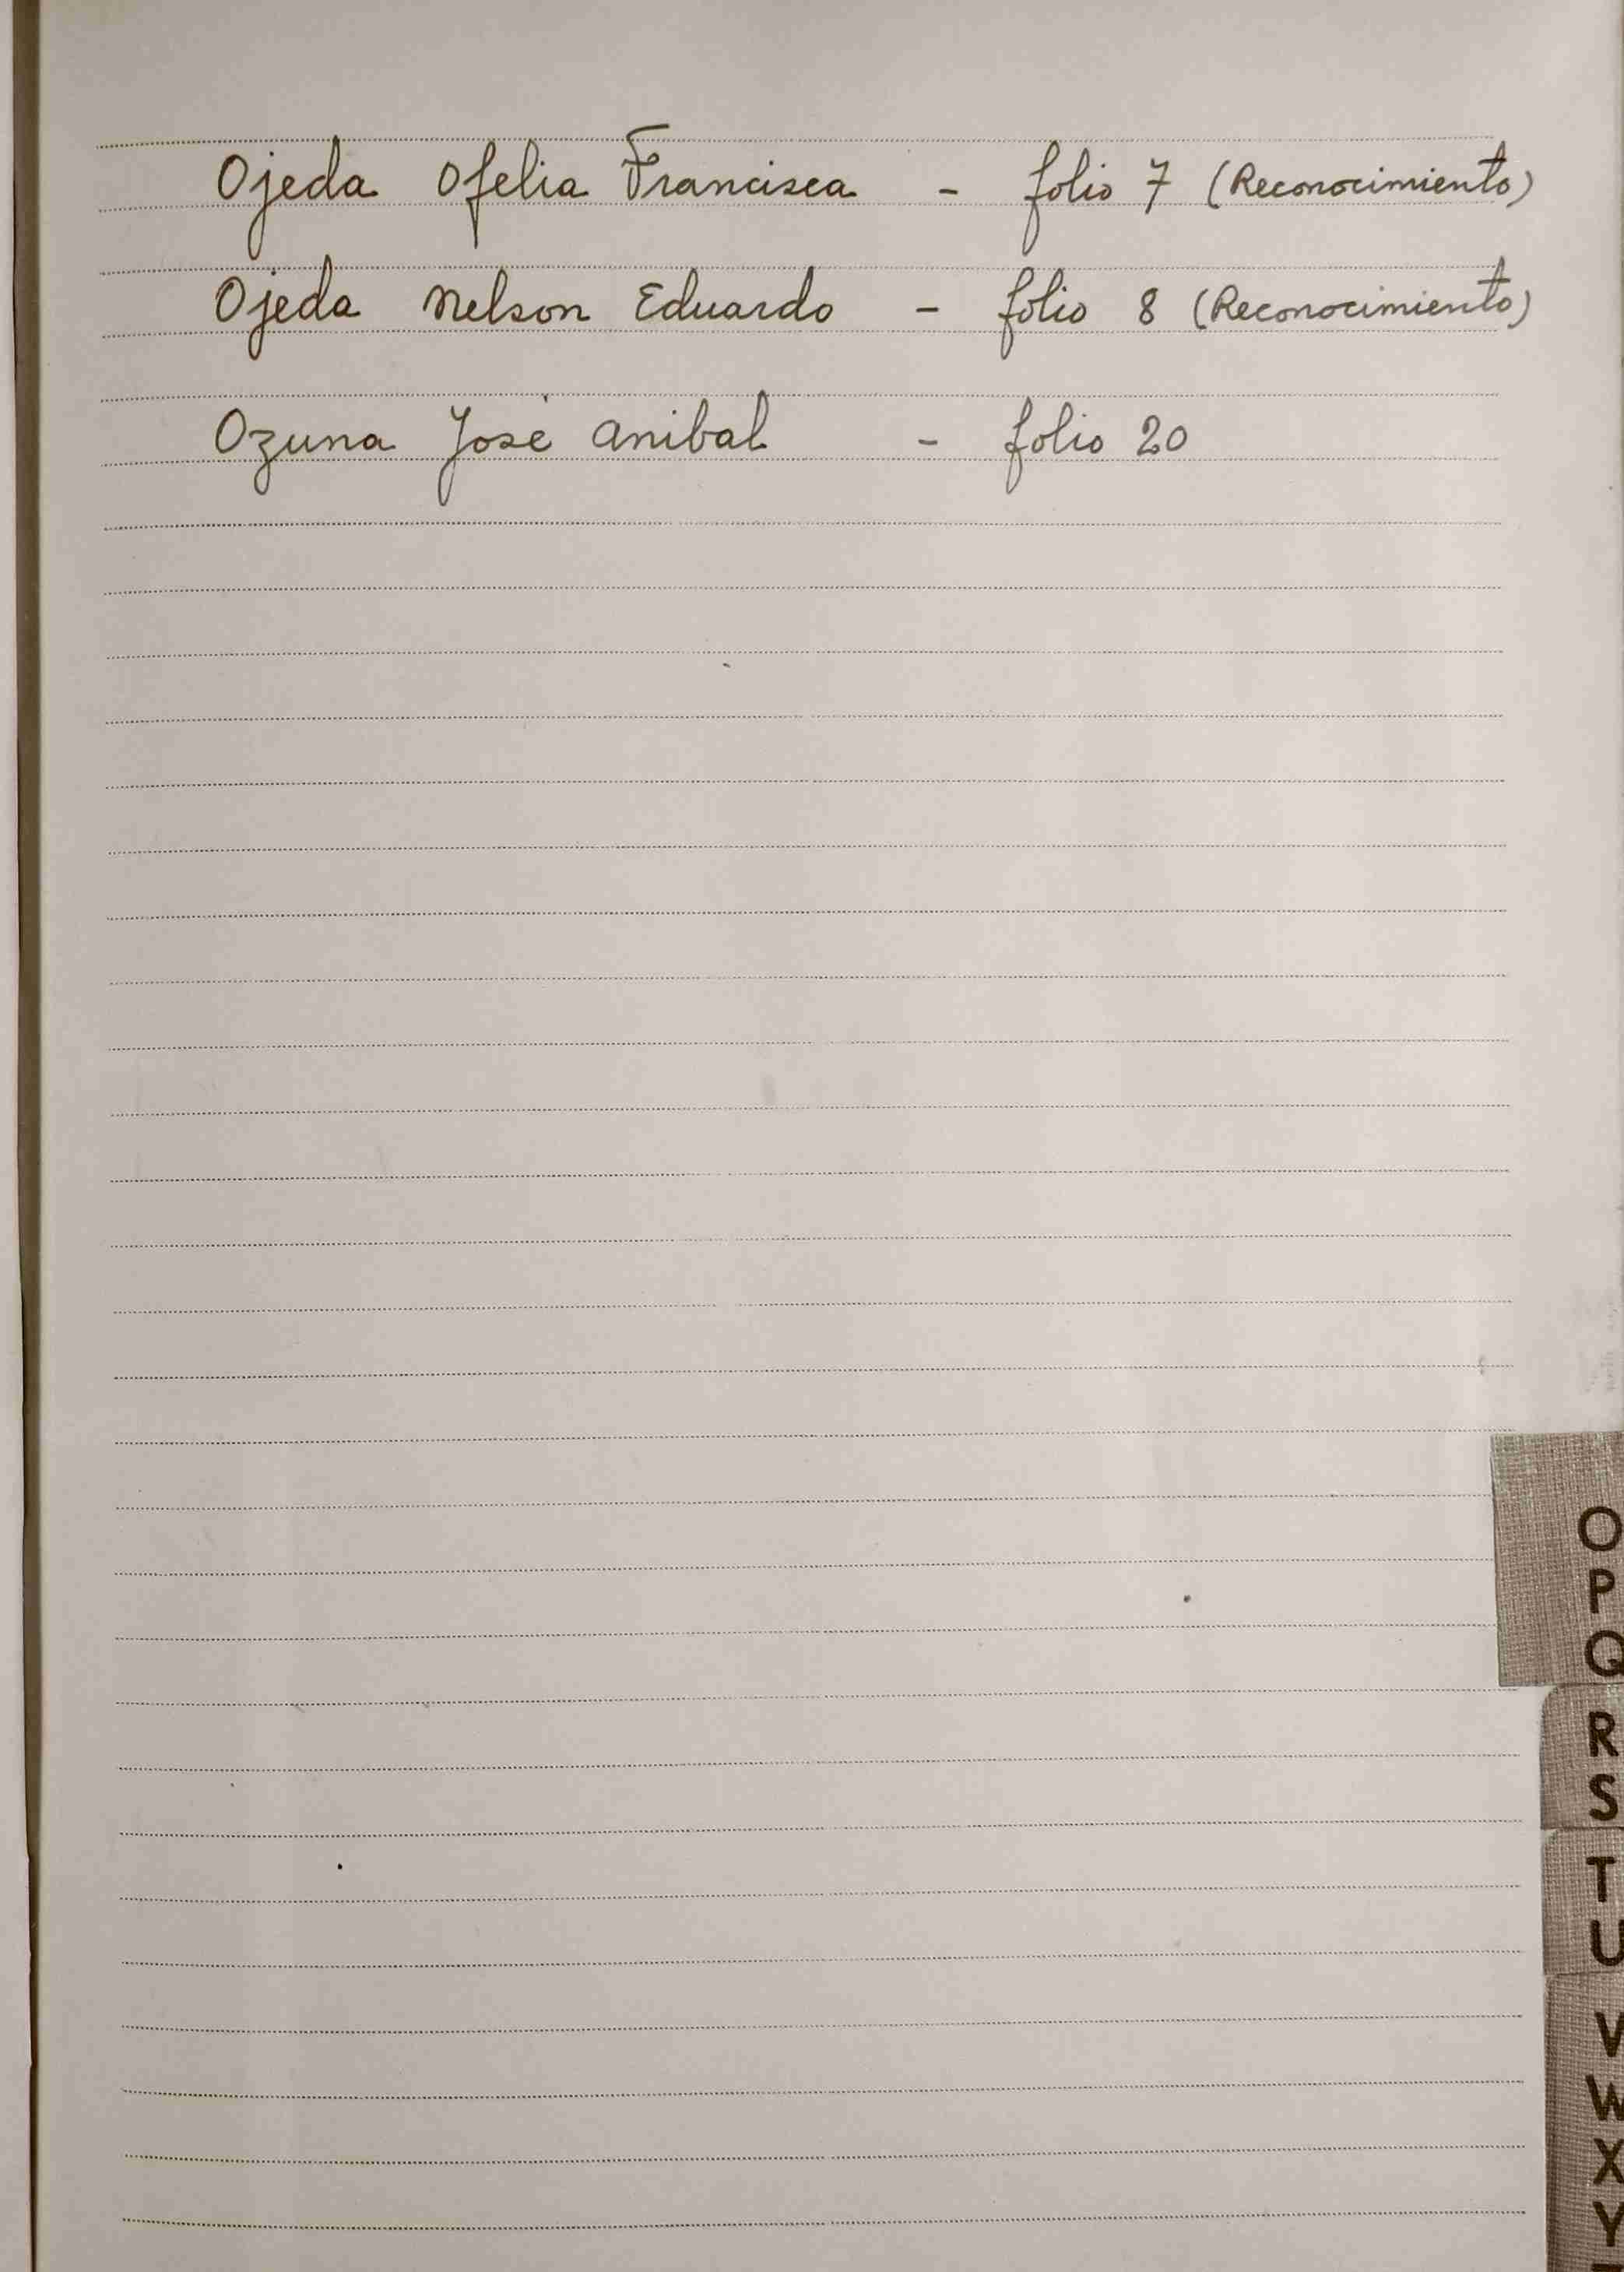 Ojeda Ofelia Francisca - folio 7 (Reconocimiento)
Ojeda Nelson Eduardo - folio 8 (Reconocimiento)
Ozuna José Anibal - folio 20
O
P
Q
R
S
T
U
V
W
X
Y